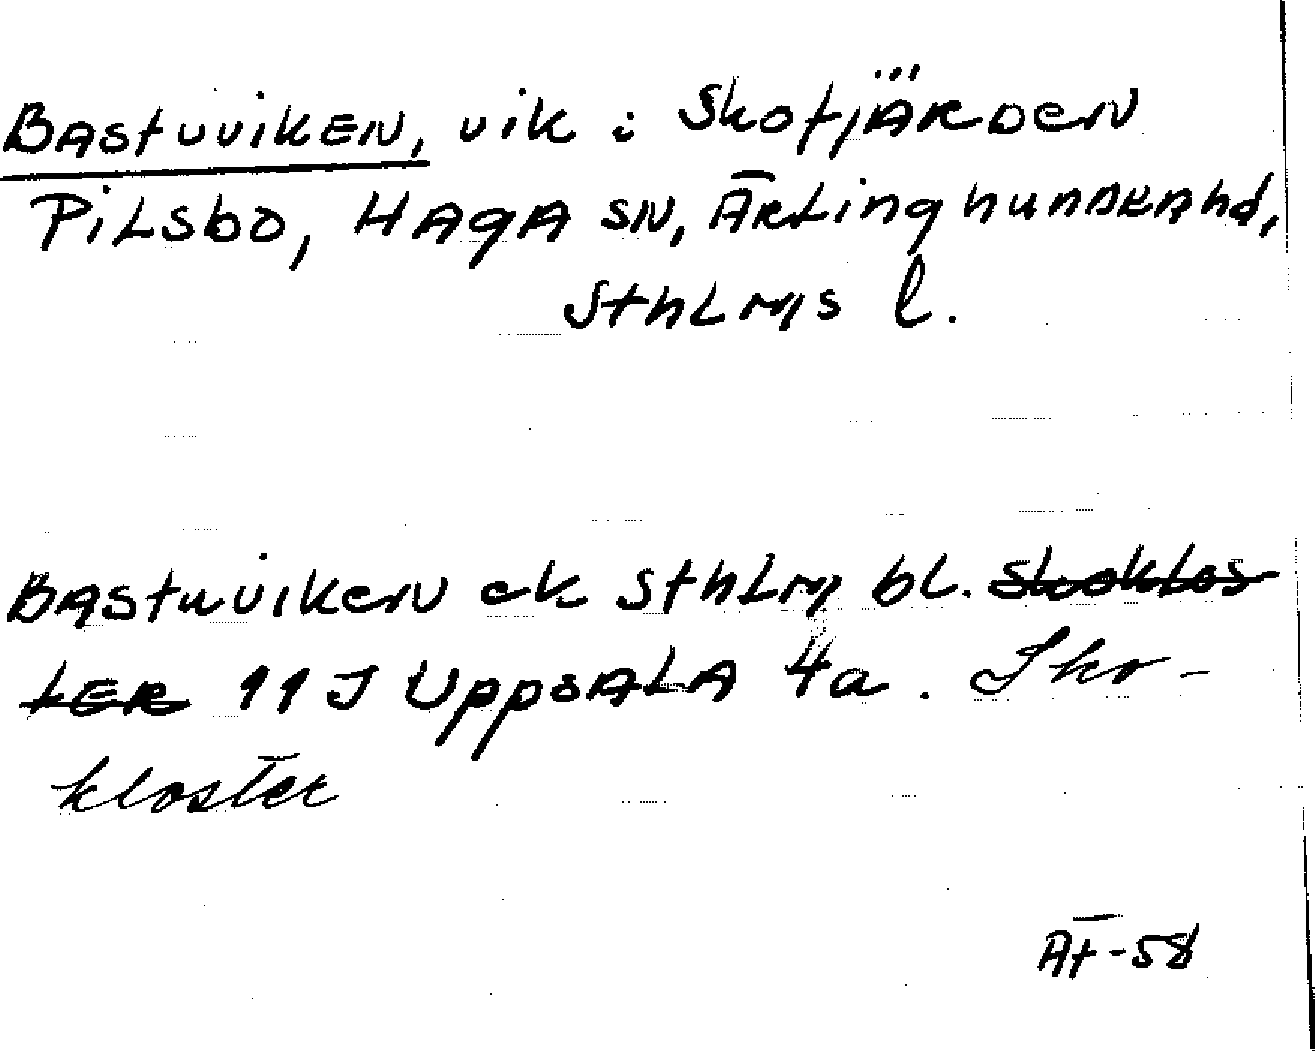 Bastuviken, vik i Skofjärden
Pilsbo, Haga sn, Ärlinghundra hd,
Sthlms l.
Bastuviken ek Sthlm bl. Skoklos
ter 11 J Uppsala 4a. Sko-
kloster
ÄF-58